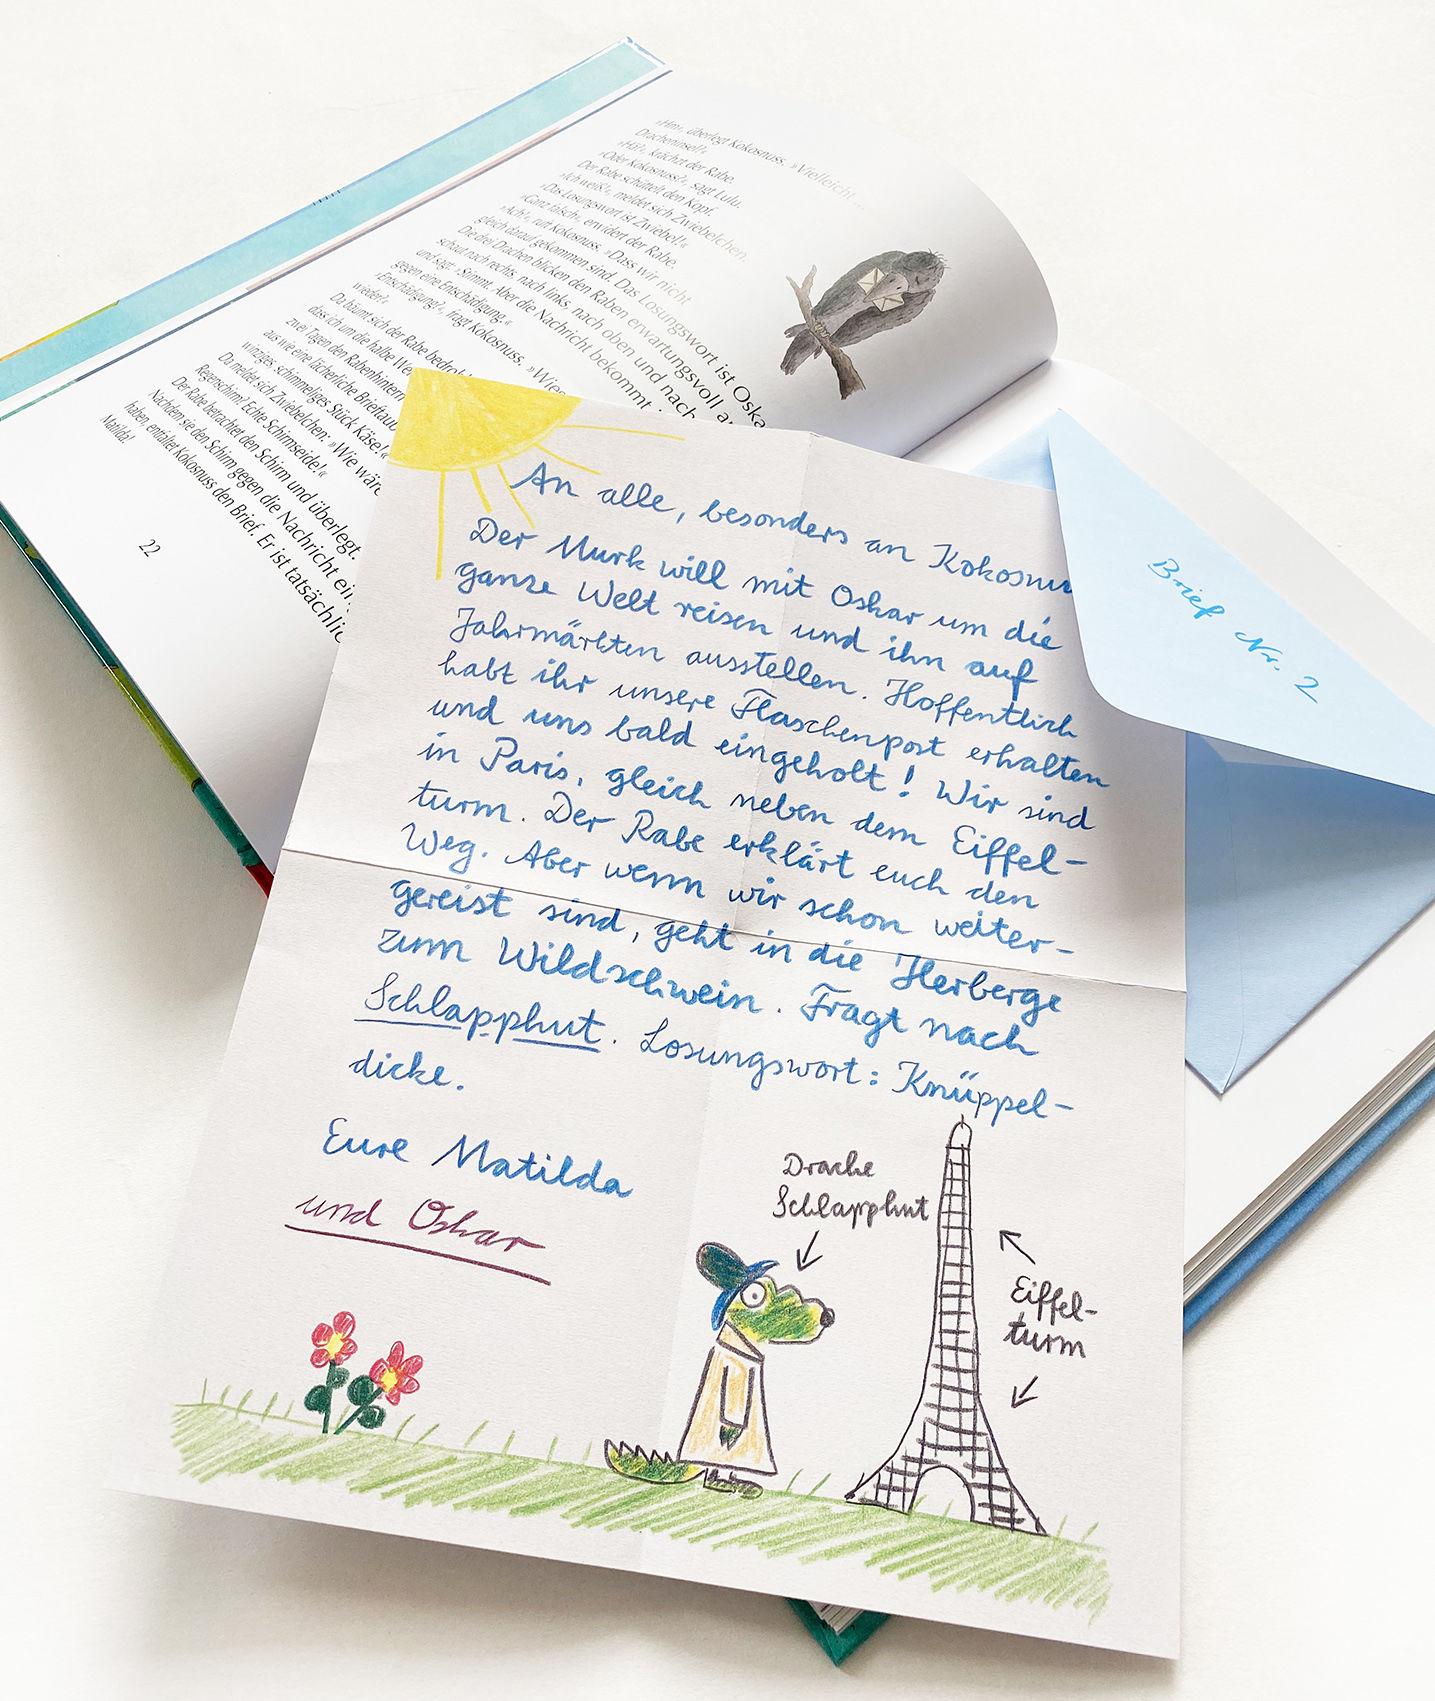 »Hm«, überlegt Kokosnuss. »Vielleicht
Dracheninsel?«
»Hä?«, krächzt der Rabe.
»Oder Kokosnuss?«, sagt Lulu.
Der Rabe schüttelt den Kopf.
»Ich weiß!«, meldet sich Zwiebelchen.
»Das Losungswort ist Zwiebel!«
»Ganz falsch«, erwidert der Rabe.
»Ach!«, ruft Kokosnuss. »Dass wir nicht
gleich darauf gekommen sind. Das Losungswort ist Oska
Die drei Drachen blicken den Raben erwartungsvoll a
schaut nach rechts, nach links, nach oben und nach
und sagt: »Stimmt. Aber die Nachricht bekommt
gegen eine Entschädigung.«
»Entschädigung?«, fragt Kokosnuss. »Wies
wieder?«
Da bäumt sich der Rabe bedroh
dass ich um die halbe We
zwei Tagen den Rabenhintern
aus wie eine lächerliche Brieftaub
winziges schimmeliges Stück Käse!«
Da meldet sich Zwiebelchen. »Wie wäre
Regenschirm? Echte Schirmseide!«
Der Rabe betrachtet den Schirm und überlegt.
Nachdem sie den Schirm gegen die Nachricht ein
haben, entfaltet Kokosnuss den Brief. Er ist tatsächlic
Matilda!
22
An alle, besonders an Kokosnu
Der Murk will mit Oskar um die
ganze Welt reisen und ihn auf
Jahrmärkten ausstellen. Hoffentlich
habt ihr unsere Flaschenpost erhalten
und uns bald eingeholt! Wir sind
in Paris, gleich neben dem Eiffel-
turm. Der Rabe erklärt euch den
Weg. Aber wenn wir schon weiter-
gereist sind, geht in die Herberge
zum Wildschwein. Fragt nach
Schlapphut. Losungswort: Knüppel-
dicke.
Eure Matilda
und Oskar
Drache
Schlapphut
Eiffel-
turm
Brief Nr. 2